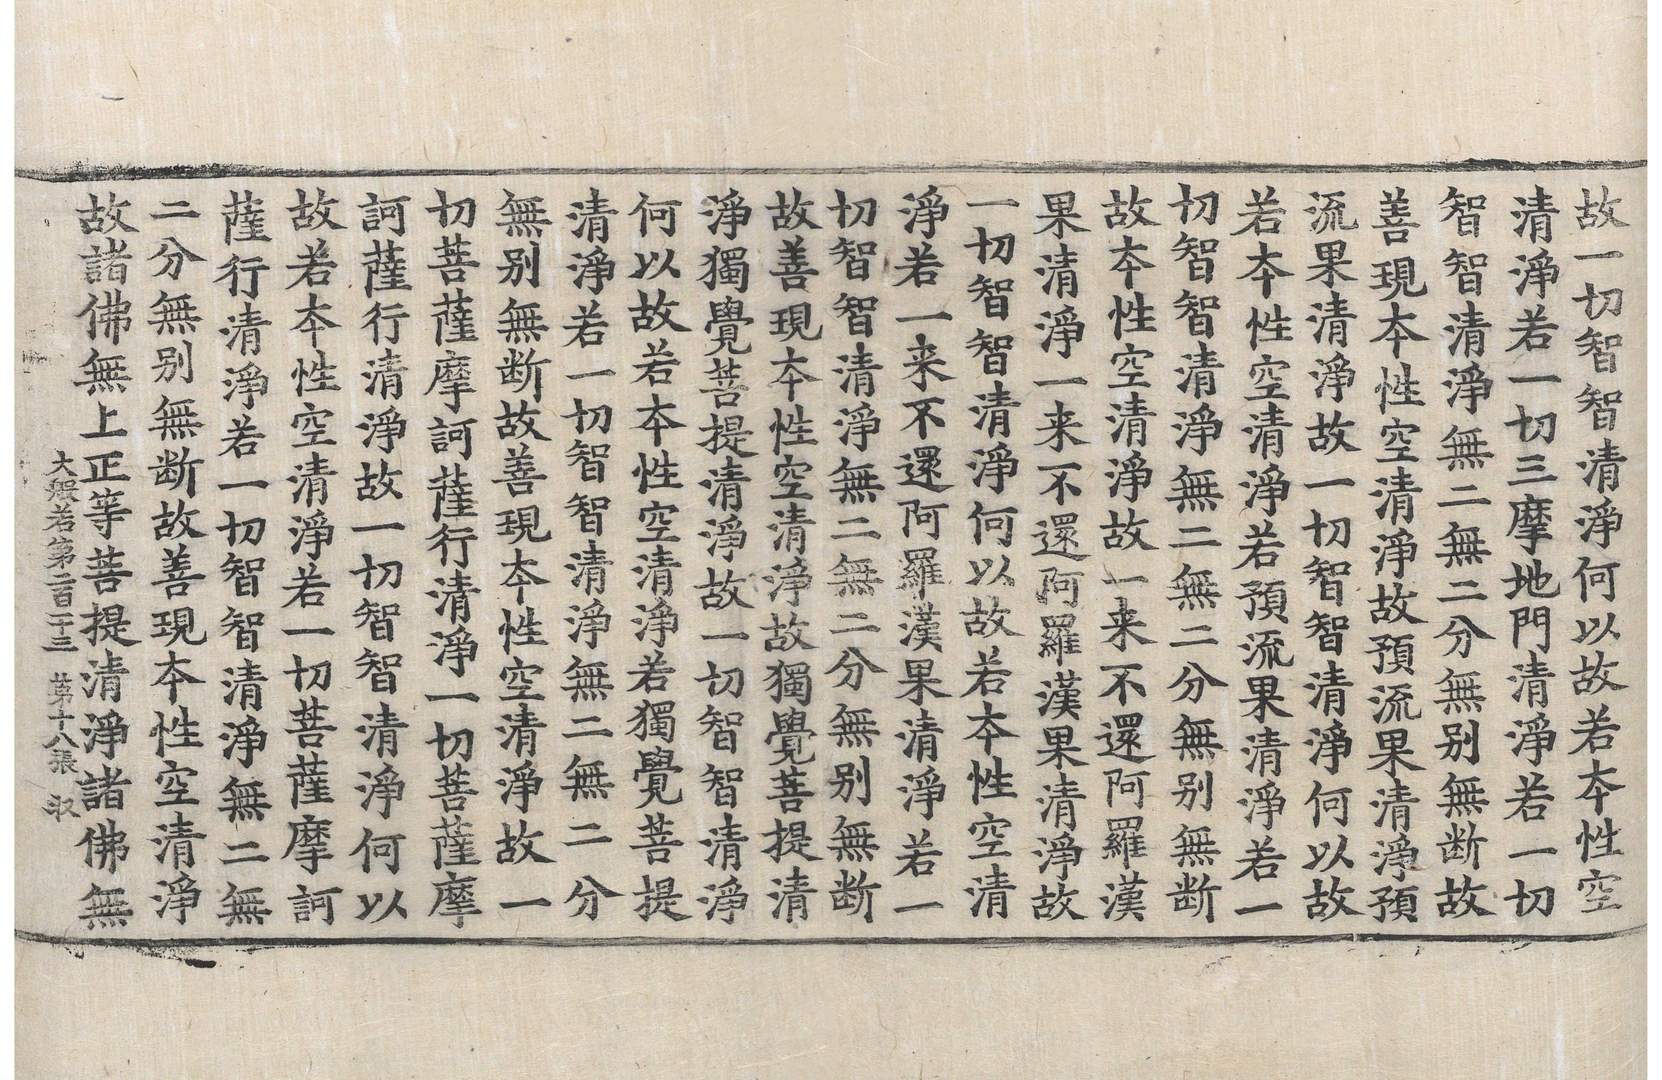 故一切智智清淨何以故若夲性空
清淨若一切三摩地門清淨若一切
智智清淨無二無二分無别無断故
善現夲性空清淨故預流果清淨預
流果清淨故一切智智清淨何以故
若夲性空清淨若預流果清淨若一
切智智清淨無二無二分無别無断
故夲性空清淨故一来不還阿羅漢
果清淨一来不還阿羅漢果清淨故
一切智智清淨何以故若夲性空清
淨若一来不還阿羅漢果清淨若一
切智智清淨無二無二分無别無断
故善現夲性空清淨故獨覺菩提清
淨獨覺菩提清淨故一切智智清淨
何以故若夲性空清淨若獨覺菩提
清淨若一切智智清淨無二無二分
無别無断故善現夲性空清淨故一
切菩薩摩訶薩行清淨一切菩薩摩
訶薩行清淨故一切智智清淨何以
故若夲性空清淨若一切菩薩摩訶
薩行清淨若一切智智清淨無二無
二分無别無断故善現夲性空清淨
故諸佛無上正等菩提清淨諸佛無
大般若第二百二十三 第十八張 収